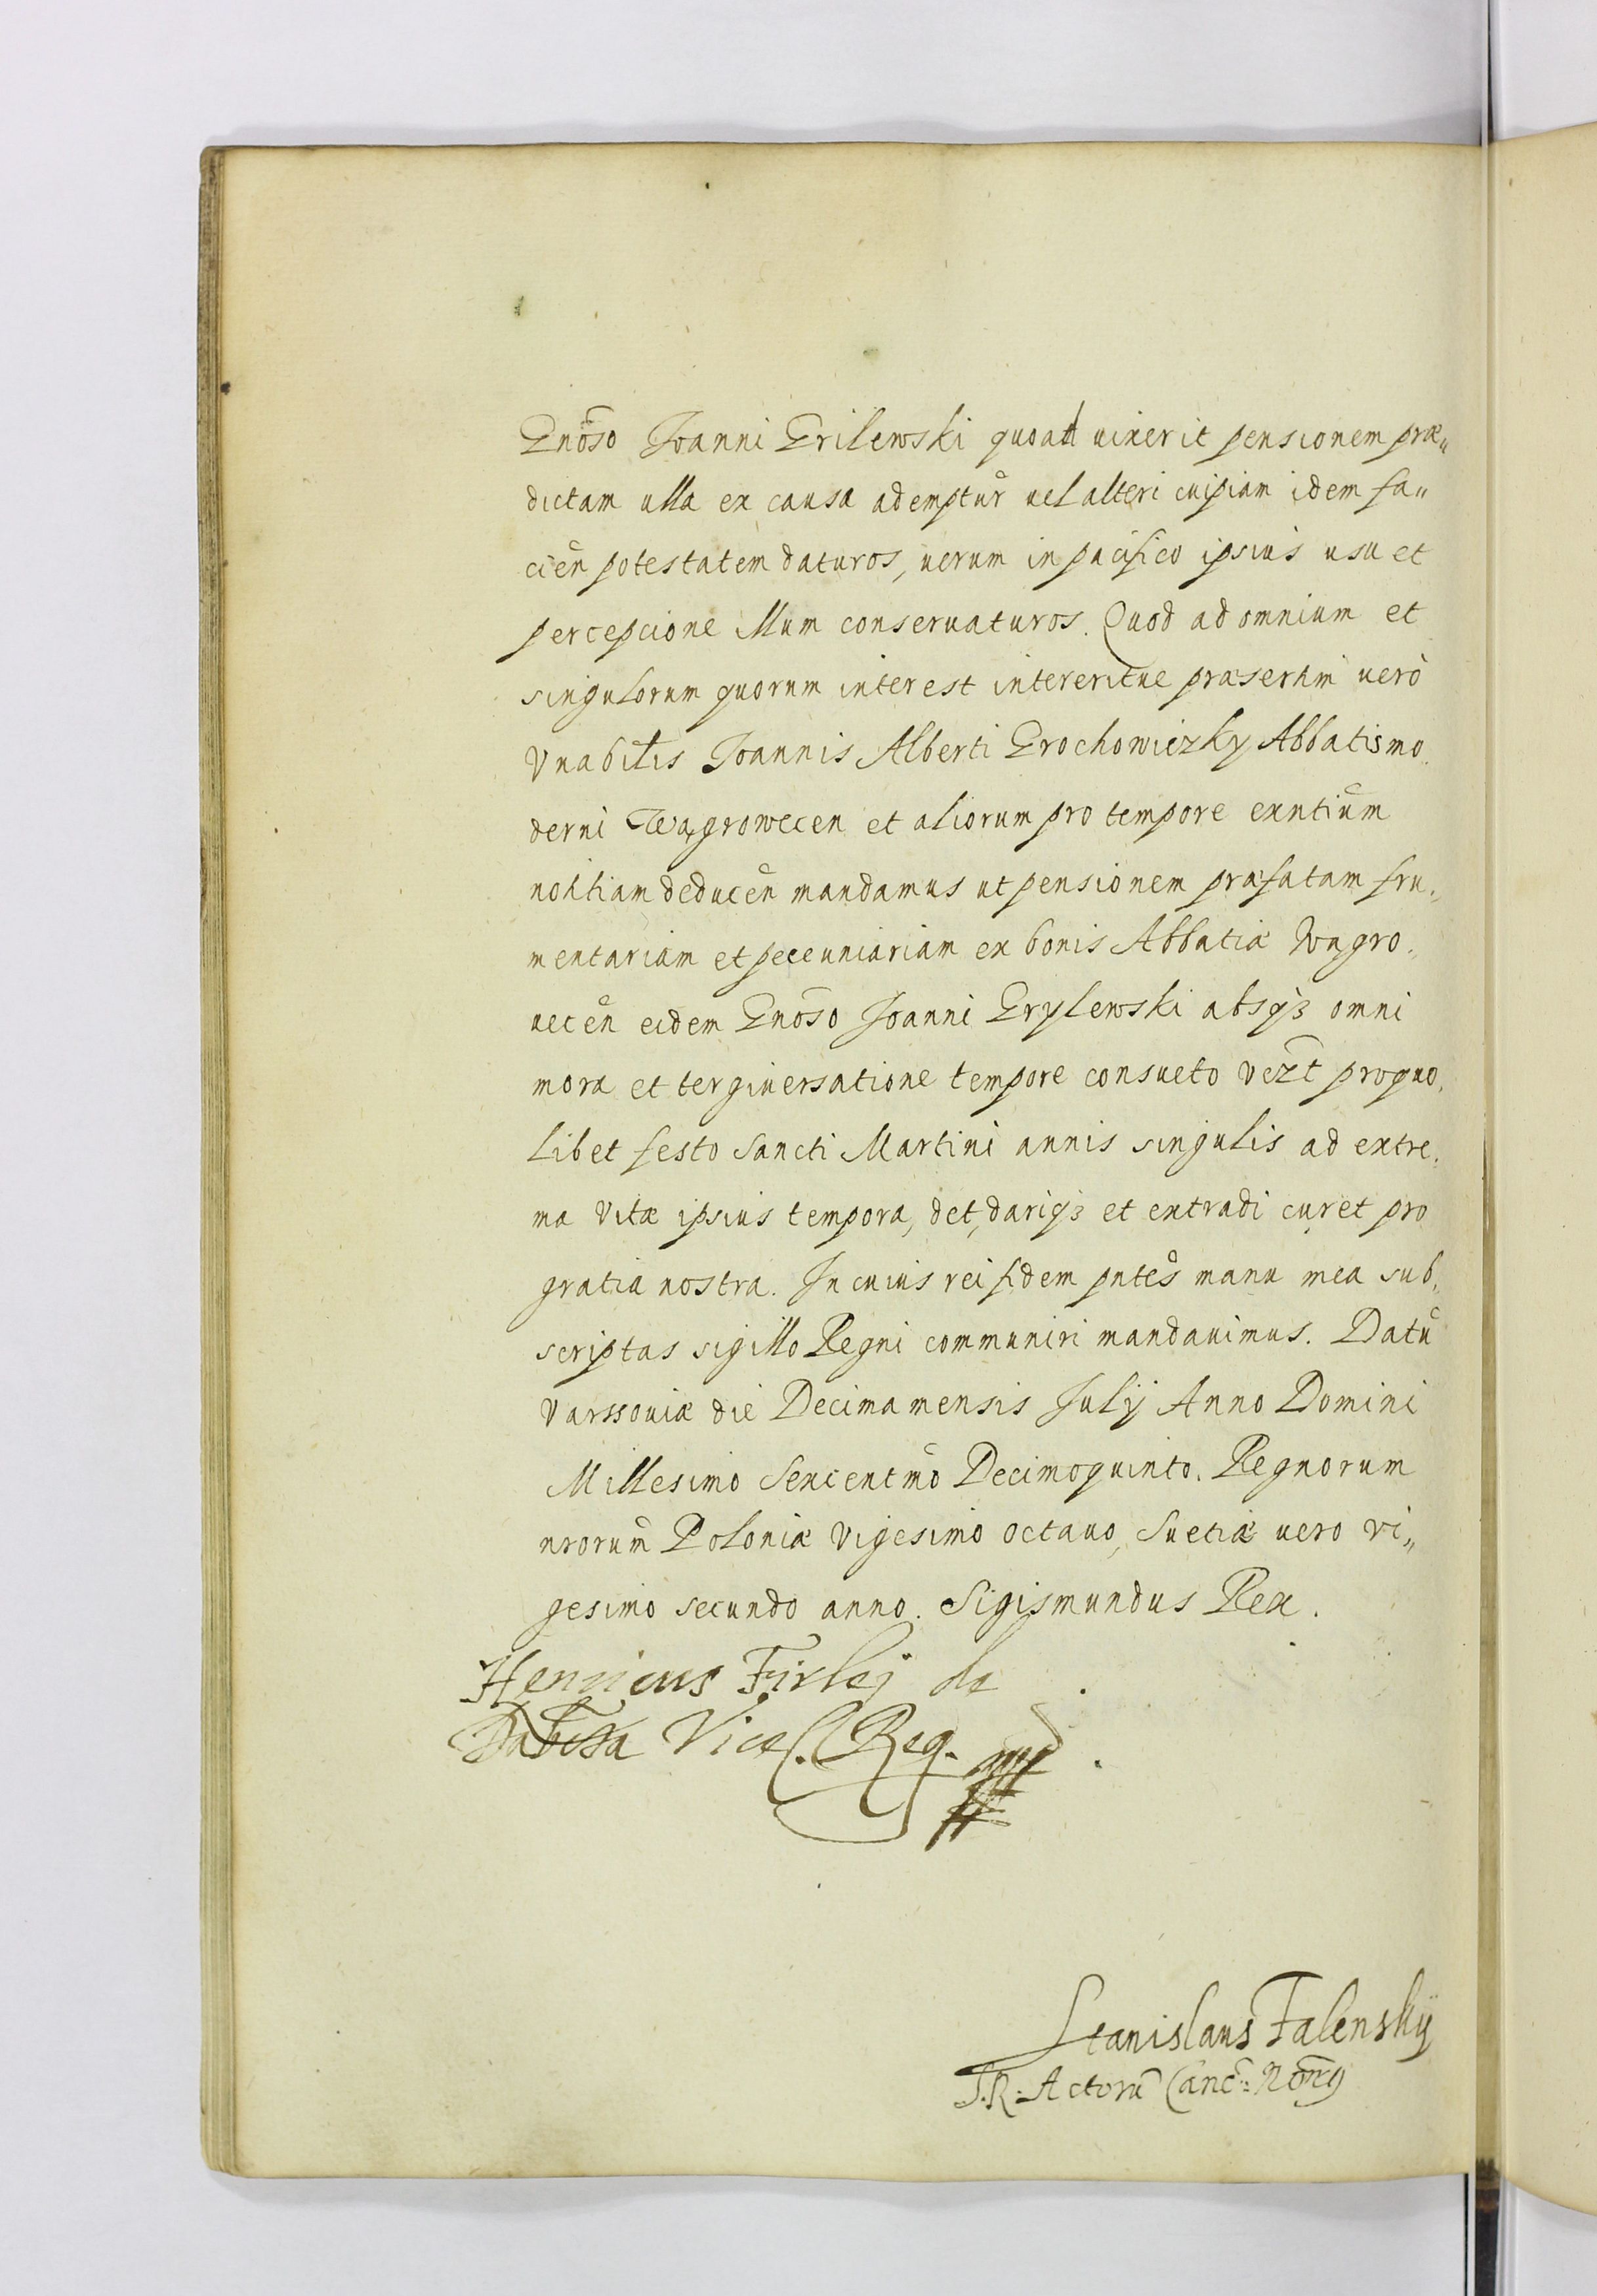 Gnōso Joanni Grilewski quoad uixerit pensionem præ„
dictam ulla ex causa ademptur̃ uel alteri cuipiam idem fa„
cien̄ potestatem daturos, uerum in pacifico ipsius usu et
percepcione illum conseruaturos. Quod ad omnium et
singulorum quorum interest intereritue præsertim uerò
Vnabilis Joannis Alberti Grochowiczky Abbatis mo„
derni Wągrowecen et aliorum pro tempore exntium̃
notitiam deducen̄ mandamus ut pensionem præfatam fru„
mentariam et peceuniariam ex bonis Abbatiæ Wągro„
uecen̄ eidem Gnōso Joanni Grylewski absqꝫ omni
mora et terginersatione tempore consueto Vezt̄ pro quo„
libet festo Sancti Martini annis singulis ad extre„
ma Vitæ ipsius tempora, det, dariqꝫ et extradi curet pro
gratia nostra. In cuius rei fidem pntes̃ manu mea sub„
scriptas sigillo Regni communiri mandauimus. Datũ
Varssouiæ die Decima mensis Julij Anno Domini
Millesimo Sexcentmõ Decimoquinto. Regnorum
nrorum̃ Poloniæ Vigesimo octauo, Suetiæ uero vi„
gesimo secundo anno. Sigismundus Rex.
Henricus Firley de
Dabrowica Vicec. Reg. mpp
Stanislaus Falensky
S. R. Actorũ Canc: Norẽ